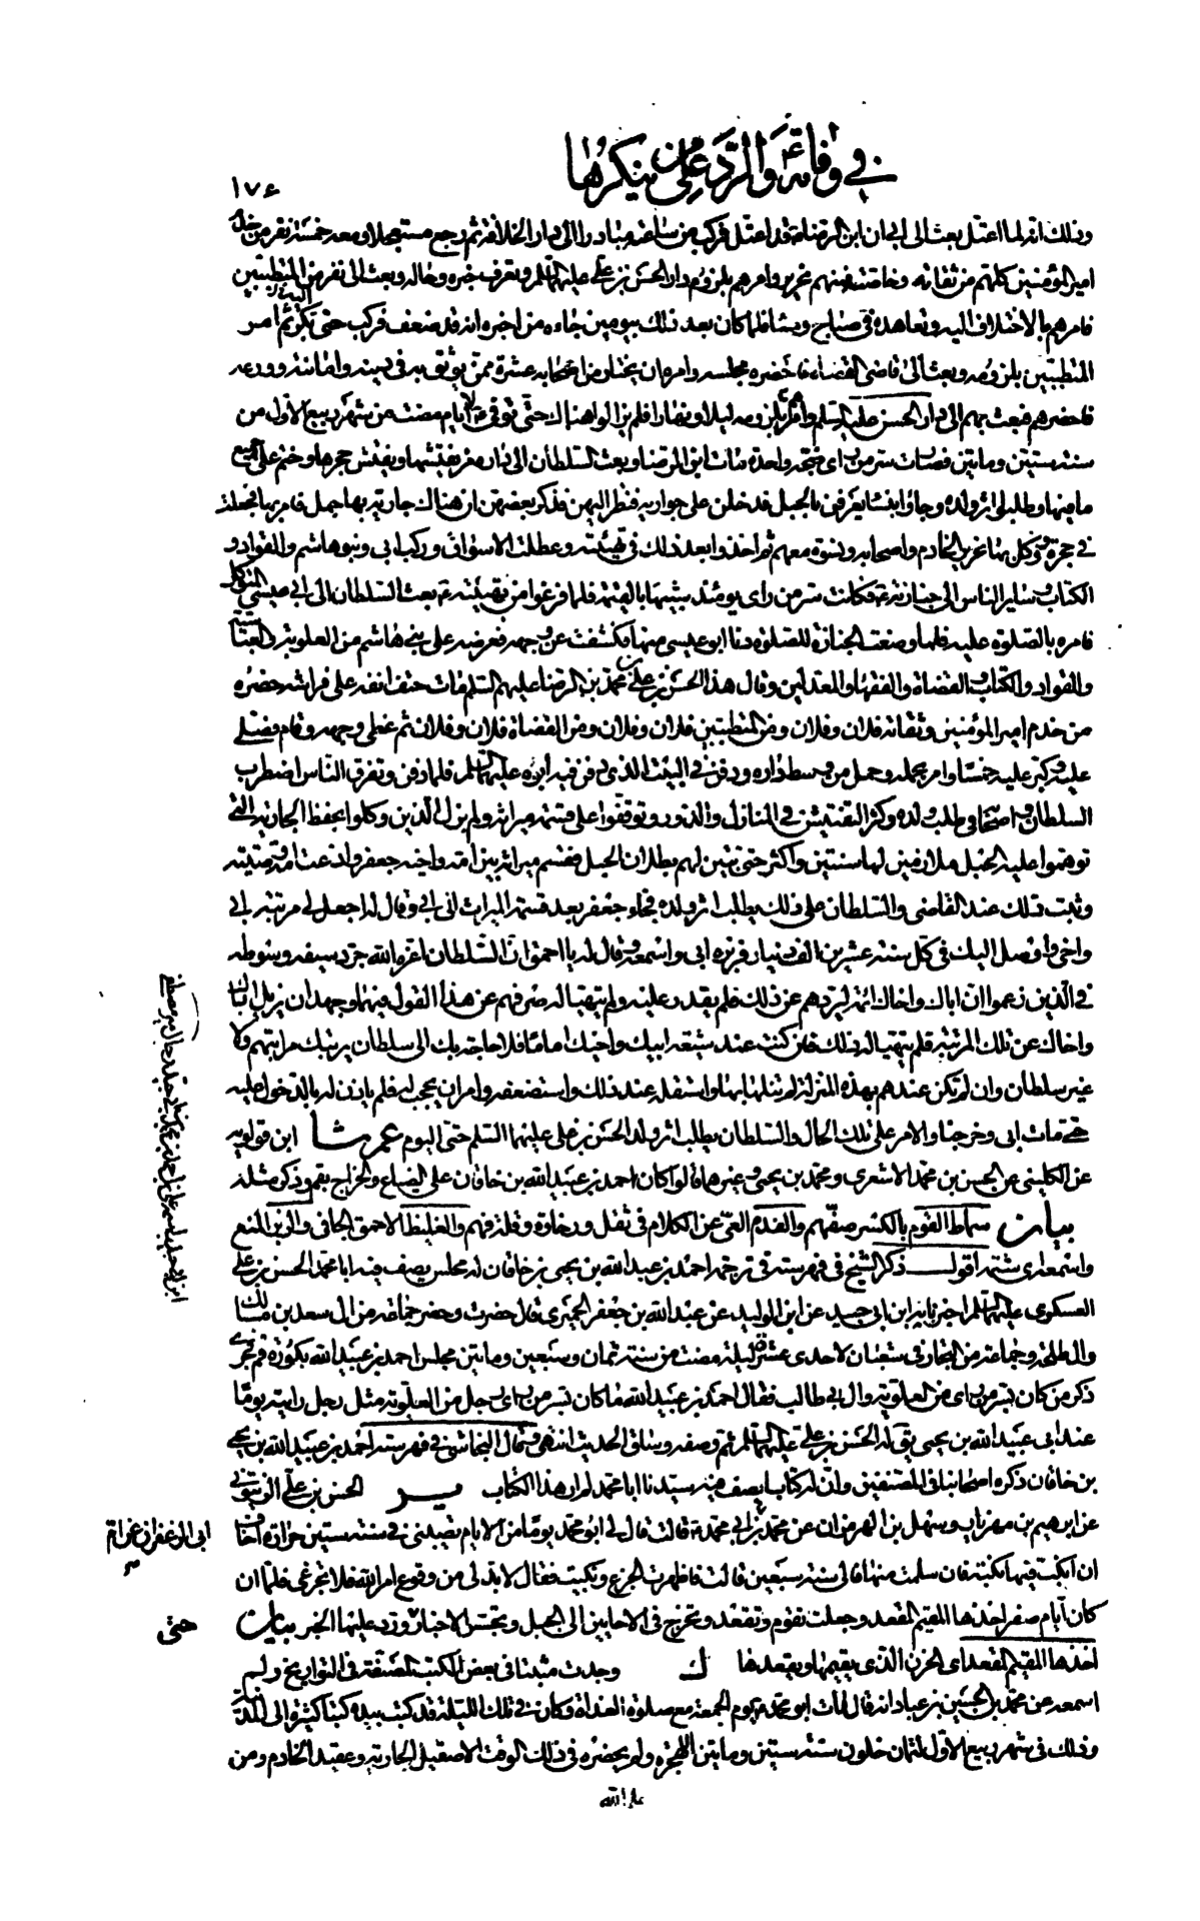 في وفاته والرد على من ينكرها
١٧٤
وذلك انه لما اعتل بعث الى ابي ان ابن الرضا قد اعتل فركب من ساعته مبادرا الى دار الخلافة ثم رجع مستعجلا ومعه خمسة نفر من خدم
امير المؤمنين كلهم من ثقاته وخاصته فمنهم نحرير وامرهم بلزوم دار الحسن بن علي عليهما السلم وتعرف خبره وحاله وبعث الى نفر من المتطببين
فامرهم بالاختلاف اليه وتعاهده في صباح ومساء فلما كان بعد ذلك بيومين جاءه من اخبره انه قد ضعف فركب حتى بكر اليه ثم امر
المتطببين بلزومه وبعث الى قاضي القضاة فاحضره مجلسه وامره ان يختار من اصحابه عشرة ممن يوثق به في دينه وامانته وورعه
فاحضرهم فبعث بهم الى دار الحسن عليه السلم وامرهم بلزومه ليلا ونهارا فلم يزالوا هناك حتى توفي لايام مضت من شهر ربيع الاول من
سنة ستين ومايتين فصارت سر من راى ضجة واحدة مات ابن الرضا وبعث السلطان الى داره من يفتشها ويفتش حجرها وختم على جميع
ما فيها وطلبوا اثر ولده وجاؤا بنساء يعرفن بالحبل فدخلن على جواريه فنظر اليهن فذكر بعضهن ان هناك جارية بها حمل فامر بها فجعلت
في حجرة ووكل بها نحرير الخادم واصحابه ونسوة معهم ثم اخذوا بعد ذلك في تهيئته وعطلت الاسواق وركب ابي وبنو هاشم والقواد و
الكتاب وساير الناس الى جنازته فكانت سر من راى يومئذ شبيها بالقيمة فلما فرغوا من تهيئته بعث السلطان الى ابي عيسى بن المتوكل
فامره بالصلوة عليه فلما وضعت الجنازة للصلوة دنا ابو عيسى منها فكشف عن وجهه فعرضه على بني هاشم من العلوية والعباسية
والقواد والكتاب والقضاة والفقهاء والمعدلين وقال هذا الحسن بن علي بن محمد بن الرضا عليهم السلم مات حتف انفه على فراشه حضره
من خدم امير المؤمنين وثقاته فلان وفلان ومن المتطببين فلان وفلان ومن القضاة فلان وفلان ثم غطى وجهه وقام فصلى
عليه وكبر عليه خمسا وامر بحمله وحمل من وسط داره ودفن في البيت الذي دفن فيه ابوه عليهما السلم فلما دفن وتفرق الناس اضطرب
السلطان واصحابه في طلب ولده وكثر التفتيش في المنازل والدور وتوقفوا على قسمة ميراثه ولم يزل الذين وكلوا بحفظ الجارية التي
توهموا عليه الحبل ملازمين لها سنتين واكثر حتى تبين لهم بطلان الحبل فقسم ميراثه بين امه واخيه جعفر وادعت امه وصيته
وثبت ذلك عند القاضي والسلطان على ذلك يطلب اثر ولده فجاء جعفر بعد قسمة الميراث الى ابي وقال له اجعل لي مرتبة ابي
واخي واوصل اليك في كل سنة عشرين الف دينار فزبره ابي واسمعه وقال له يا احمق ان السلطان اعزه الله جرد سيفه وسوطه
في الذين زعموا ان اباك واخاك ائمة ليردهم عن ذلك فلم يقدر عليه ولم يتهيا له صرفهم عن هذا القول فيهما وجهد ان يزيل اباك
واخاك عن تلك المرتبة فلم يتهيا له ذلك فان كنت عند شيعة ابيك واخيك اماما فلا حاجة بك الى سلطان يرتبك مراتبهم ولا
غير سلطان وان لم تكن عندهم بهذه المنزلة لم تنلها بها واستقله عند ذلك واستضعفه وامر ان يحجب له فلم ياذن له بالدخول عليه
حتى مات ابي وخرجنا والامر على تلك الحال والسلطان يطلب اثر ولد الحسن بن علي عليهما السلم حتى اليوم عم شا ابن قولويه
عن الكليني عن الحسن بن محمد الاشعري ومحمد بن يحيى وغيرهما قالوا كان احمد بن عبيد الله بن خاقان على الضياع والخراج بقم وذكر مثله
بيان سماط القوم بالكسر صفهم والفدم العي عن الكلام في ثقل ورخاوة وقلة فهم والغليظ الاحمق الجافي والزبر المنع
واسمعه اي شتمه اقول ذكر الشيخ في فهرسته في ترجمة احمد بن عبيد الله بن يحيى بن خاقان له مجلس يصف فيه ابا محمد الحسن بن علي
العسكري عليهما السلم اخبرنا به ابن ابي جيد عن ابن الوليد عن عبد الله بن جعفر الحميري قال حضرت وحضر جماعة من ال سعد بن مالك
وال طلحة وجماعة من التجار في شعبان لاحدى عشرة ليلة مضت من سنة ثمان وسبعين ومايتين مجلس احمد بن عبيد الله بكورة قم فجرى
ذكر من كان بسر من راى من العلوية وال ابي طالب فقال احمد بن عبيد الله ما كان بسر من راى رجل من العلوية مثل رجل رايته يوما
عند ابي عبيد الله بن يحيى يق له الحسن بن علي عليهما السلم ثم وصفه وساق الحديث انتهى وقال النجاشي في فهرسته احمد بن عبيد الله بن يحيى
بن خاقان ذكره اصحابنا في المصنفين وان له كتابا يصف فيه سيدنا ابا محمد لم ار هذا الكتاب ير الحسن بن علي الزيتوني
عن ابرهيم بن مهزيار وسهل بن الهرمزان عن محمد بن ابي الزعفران عن ام ابي محمد قالت قال لي ابو محمد يوما من الايام تصيبني في سنة ستين حزازة اخاف
ان انكب فيها نكبة فان سلمت منها فالى سنة سبعين قالت فاظهرت الجزع وبكيت فقال لا بد لي من وقوع امر الله فلا تجزعي فلما ان
كان ايام صفر اخذها المقيم المقعد وجعلت تقوم وتقعد وتخرج في الاحايين الى الجبل وتجسس الاخبار حتى ورد عليها الخبر بيان
اخذها المقيم المقعد اي الحزن الذي يقيمها ويقعدها ك وجدت مثبتا في بعض الكتب المصنفة في التواريخ ولم
اسمعه عن محمد بن الحسين بن عباد انه قال مات ابو محمد يوم الجمعة مع صلوة الغداة وكان في تلك الليلة قد كتب بيده كتبا كثيرة الى المدينة
وذلك في شهر ربيع الاول لثمان خلون سنة ستين ومايتين للهجرة ولم يحضره في ذلك الوقت الا صقيل الجارية وعقيد الخادم ومن
علم الله